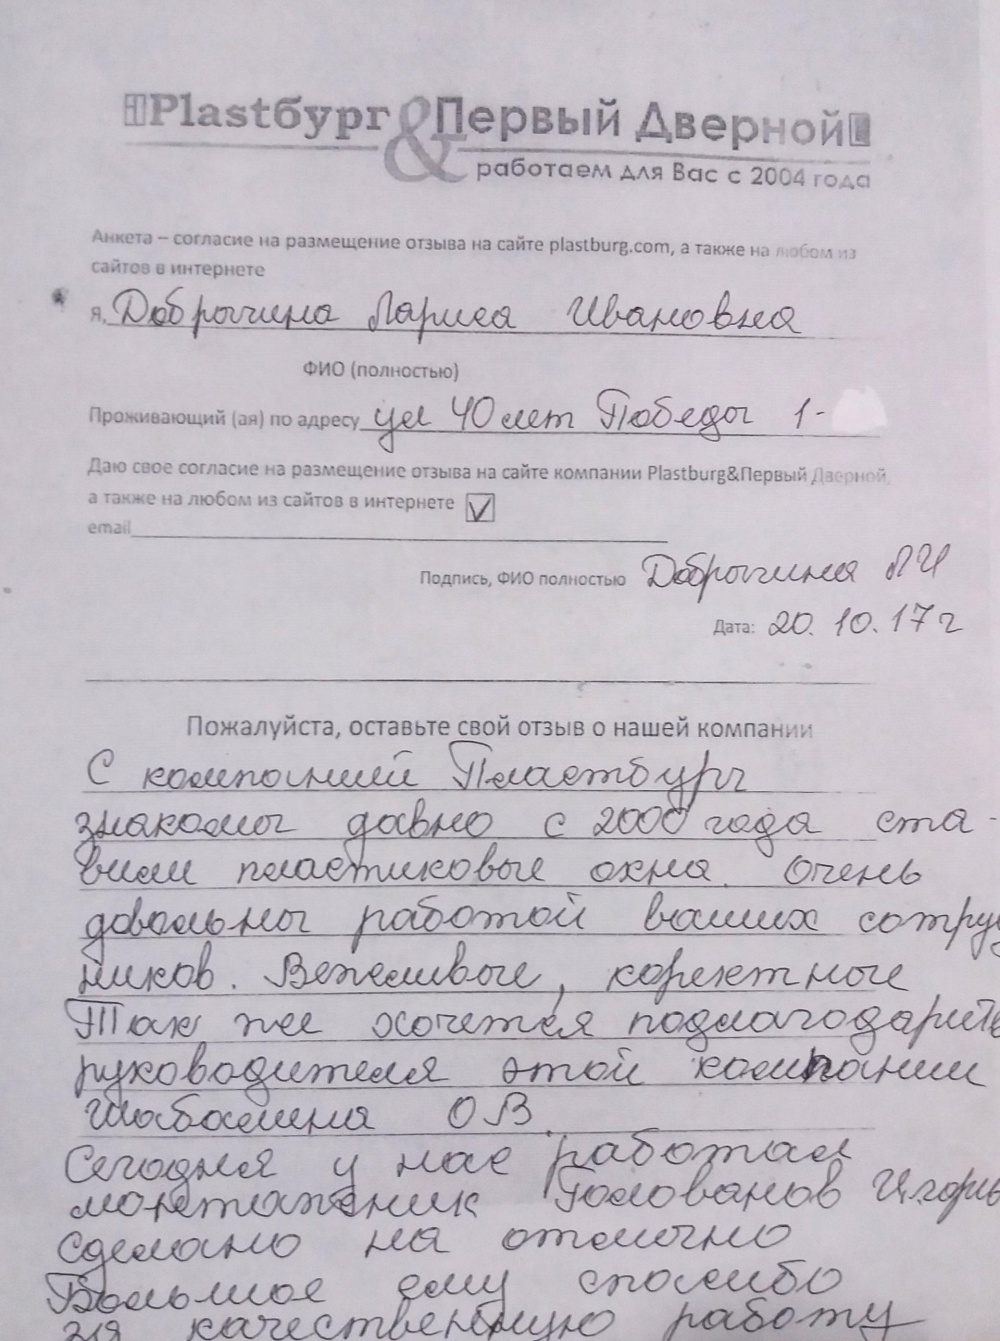 Plastбург & Первый Дверной
работаем для Вас с 2004 года
Анкета – согласие на размещение отзыва на сайте plastburg.com, а также на любом из
сайтов в интернете
Я, Добрычина Лариса Ивановна
ФИО (полностью)
Проживающий (ая) по адресу ул 40 лет Победы 1-
Даю свое согласие на размещение отзыва на сайте компании Plastburg&Первый Дверной,
а также на любом из сайтов в интернете
email
Подпись, ФИО полностью Добрычина ЛИ
Дата: 20.10.17 г
Пожалуйста, оставьте свой отзыв о нашей компании
С компанией Пластбург
знакомы давно с 2000 года ста-
вили пластиковые окна. Очень
довольны работой ваших сотруд
ников. Вежливые, коректные
Так же хочется подлагодарить
руководителя этой компании
Шабалина ОВ.
Сегодня у нас работал
монтажник Голованов Игорь
Сделано на отлично
Большое ему спасибо
за качественную работу